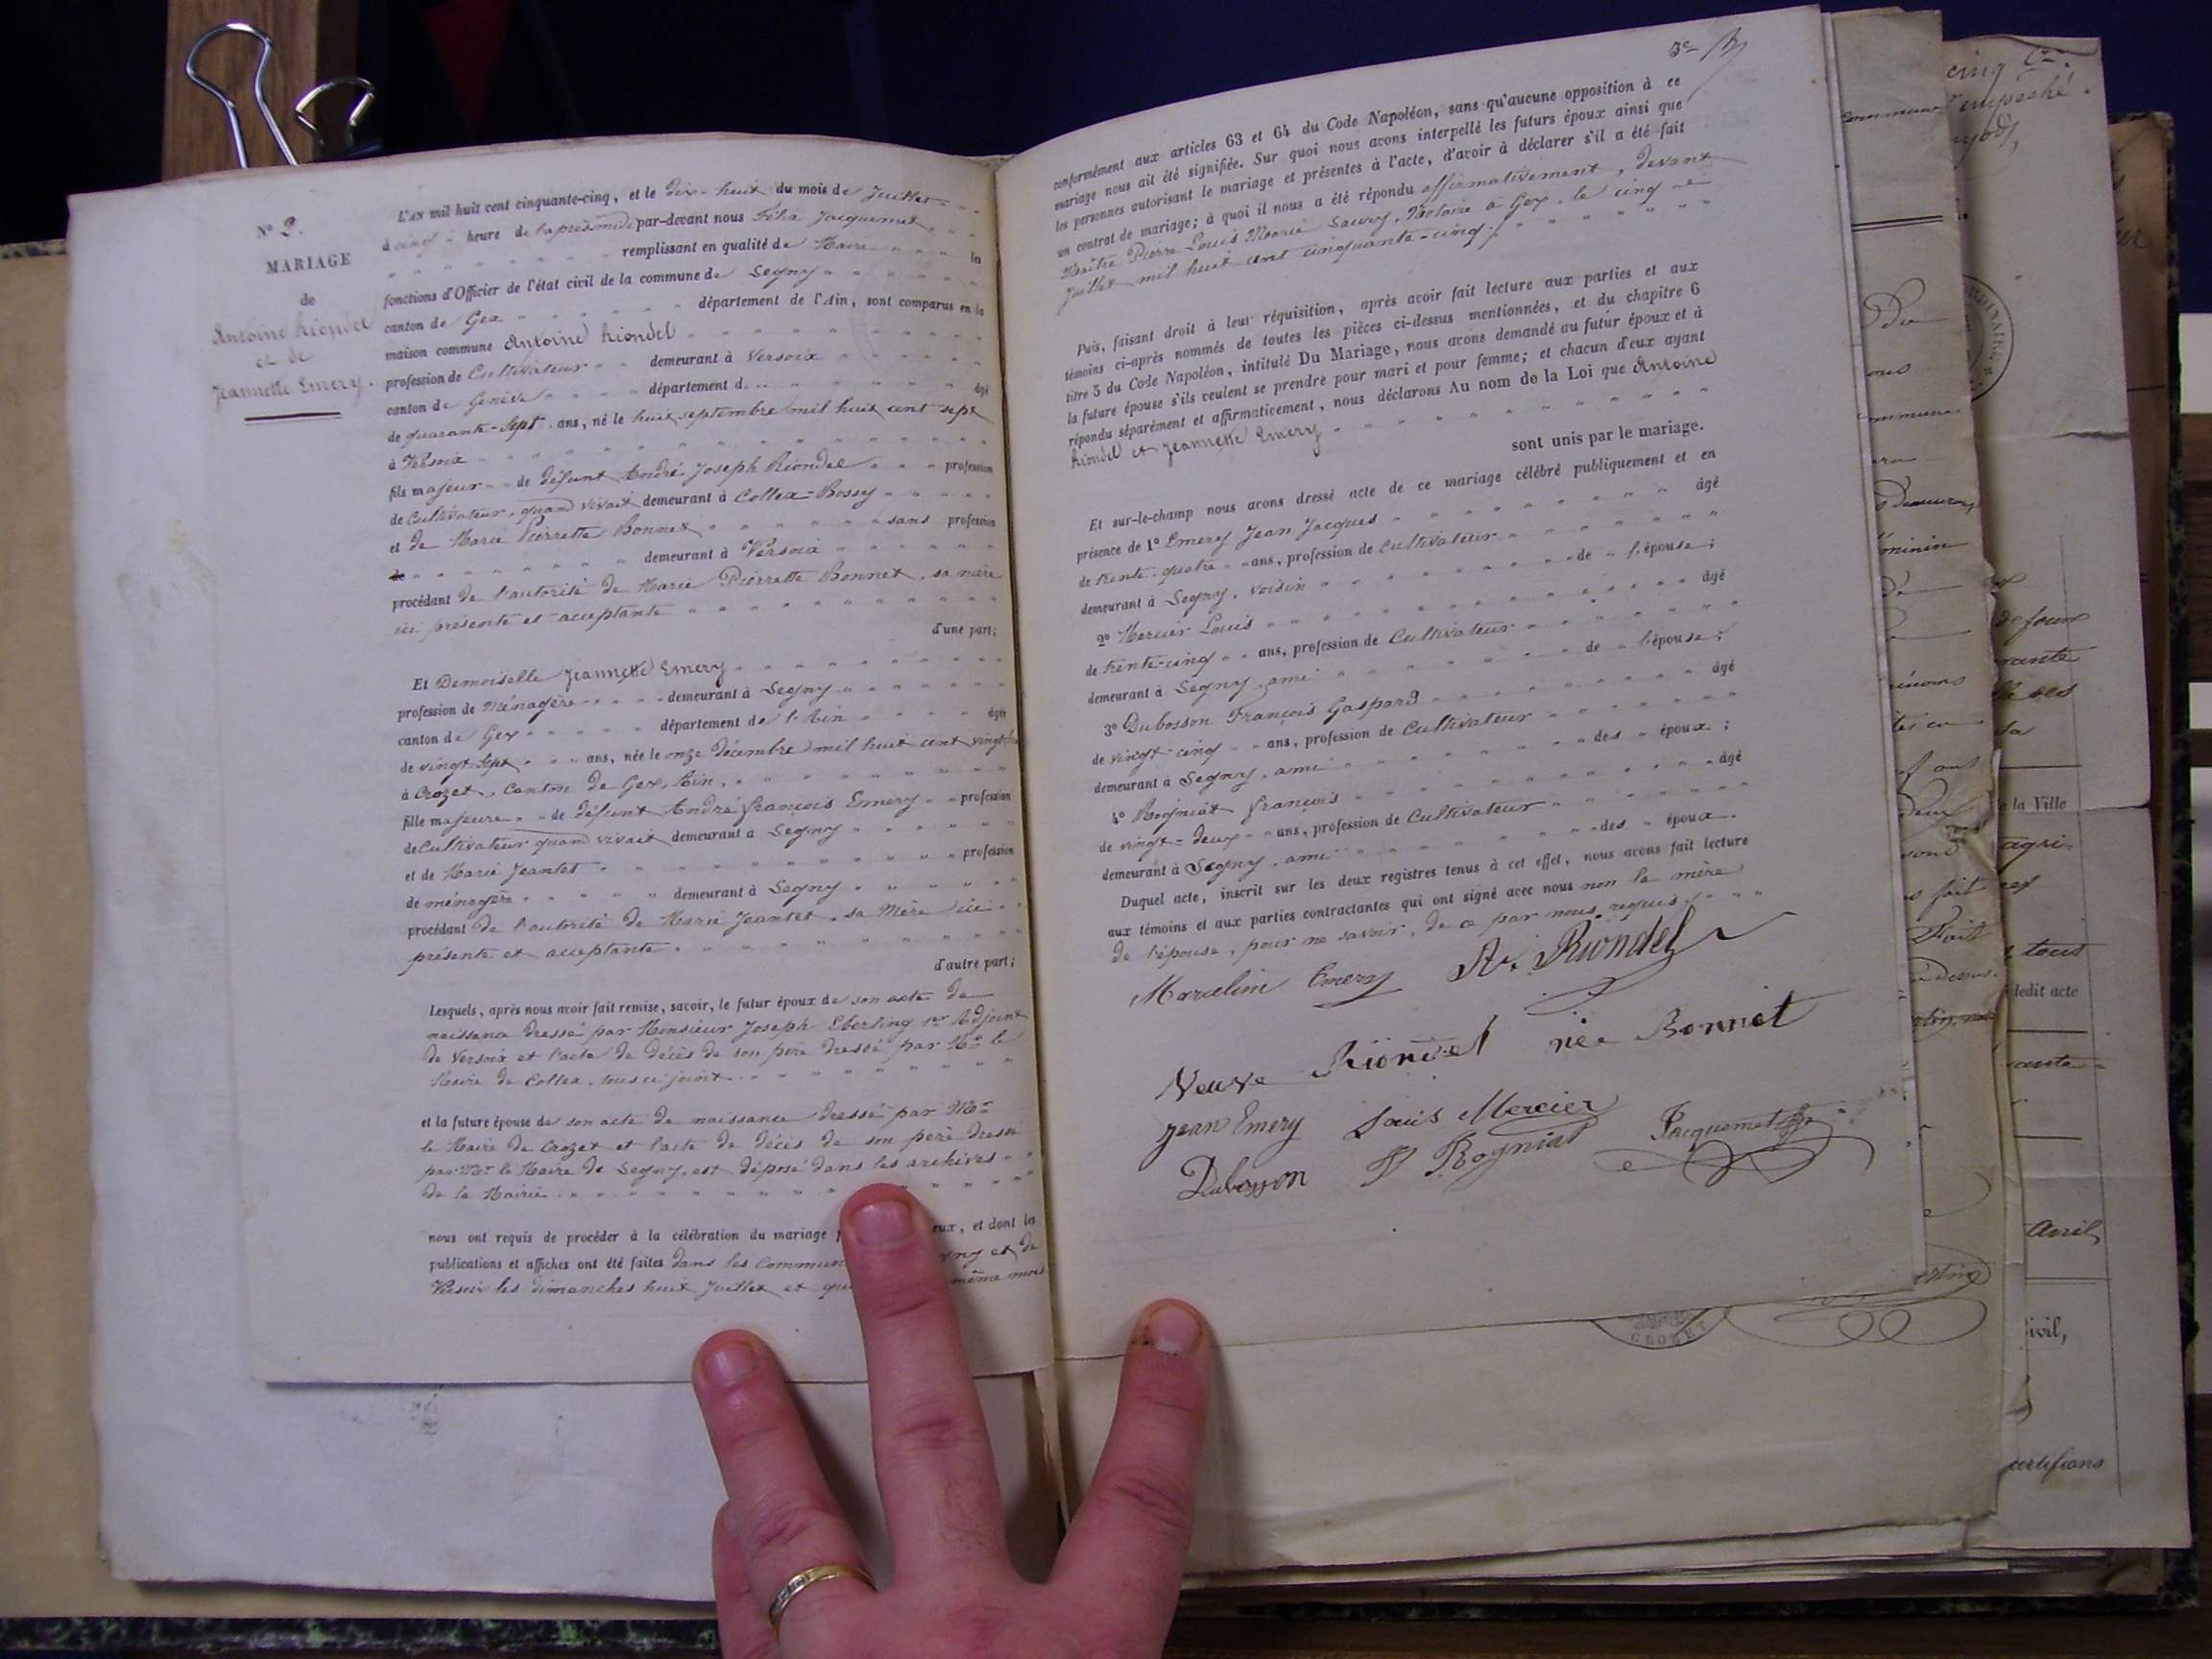 N° 2.
MARIAGE
de
Antoine Riondel
et de
Jeannette Emery.
L'AN mil huit cent cinquante-cinq, et le dix-huit du mois de Juillet
à cinq heure de l'après midi par-devant nous Félix Jacquemet
remplissant en qualité de Maire les
fonctions d'Officier de l'état civil de la commune de Segny
canton de Gex département de l'Ain, sont comparus en la
maison commune Antoine Riondel
profession de Cultivateur demeurant à Versoix
canton de Genève département d. âgé
de quarante-sept ans, né le huit septembre mil huit cent sept
à Versoix
fils majeur de défunt André Joseph Riondel profession
de Cultivateur, quand vivait demeurant à Collex-Bossy
et de Marie Pierrette Bonnet sans profession
de demeurant à Versoix
procédant de l'autorité de Marie Pierrette Bonnet, sa mère
ici présente et acceptante
d'une part;
Et Demoiselle Jeannette Emery
profession de Ménagère demeurant à Segny
canton de Gex département de l'Ain âgée
de vingt-sept ans, née le onze Décembre mil huit cent vingt
à Crozet, Canton de Gex, Ain,
fille majeure de défunt André François Emery profession
de Cultivateur quand vivait demeurant à Segny
et de Marie Jeantet profession
de ménagère demeurant à Segny
procédant de l'autorité de Marie Jeantet, sa Mère ici
présente et acceptante
d'autre part;
Lesquels, après nous avoir fait remise, savoir, le futur époux de son acte de
naissance dressé par Monsieur Joseph Eberling 1er Adjoint
de Versoix et l'acte de décès de son père dressé par Mr le
Maire de Collex, tous ci joint
et la future épouse de son acte de naissance dressé par Mr
le Maire de Crozet et l'acte de décès de son père dressé
par Mr le Maire de Segny, est déposé dans les archives
de la Mairie
nous ont requis de procéder à la célébration du mariage eux, et dont les
publications et affiches ont été faites dans les Commun gny et de
Versoix les dimanches huit Juillet et qu même mois
3e
conformément aux articles 63 et 64 du Code Napoléon, sans qu'aucune opposition à ce
mariage nous ait été signifiée. Sur quoi nous avons interpellé les futurs époux ainsi que
les personnes autorisant le mariage et présentes à l'acte, d'avoir à déclarer s'il a été fait
un contrat de mariage; à quoi il nous a été répondu affirmativement, devant
Maître Pierre Louis Marie Saury, Notaire à Gex, le cinq
Juillet mil huit cent cinquante-cinq.
Puis, faisant droit à leur réquisition, après avoir fait lecture aux parties et aux
témoins ci-après nommés de toutes les pièces ci-dessus mentionnées, et du chapitre 6
titre 5 du Code Napoléon, intitulé Du Mariage, nous avons demandé au futur époux et à
la future épouse s'ils veulent se prendre pour mari et pour femme; et chacun d'eux ayant
répondu séparément et affirmativement, nous déclarons Au nom de la Loi que Antoine
Riondel et Jeannette Emery
sont unis par le mariage.
Et sur-le-champ nous avons dressé acte de ce mariage célébré publiquement et en
présence de 1° Emery Jean Jacques âgé
de trente-quatre ans, profession de Cultivateur
demeurant à Segny, voisin de l'épouse;
2° Mercier Louis âgé
de trente-cinq ans, profession de Cultivateur
demeurant à Segny, ami de l'épouse;
3° Dubosson François Gaspard âgé
de vingt-cinq ans, profession de Cultivateur
demeurant à Segny, ami des époux;
4° Rogniat François âgé
de vingt-deux ans, profession de Cultivateur
demeurant à Segny, ami des époux.
Duquel acte, inscrit sur les deux registres tenus à cet effet, nous avons fait lecture
aux témoins et aux parties contractantes qui ont signé avec nous non la mère
de l'épouse, pour ne savoir, de ce par nous requis.
Emery Ate Riondel
Veuve Riondel née Bonnet
Jean Emery Louis Mercier
Dubosson F Rogniat Jacquemet
cinq
empêché.
commune
la Ville
agri-
tous
ledit acte
Avril,
ivil,
certifions